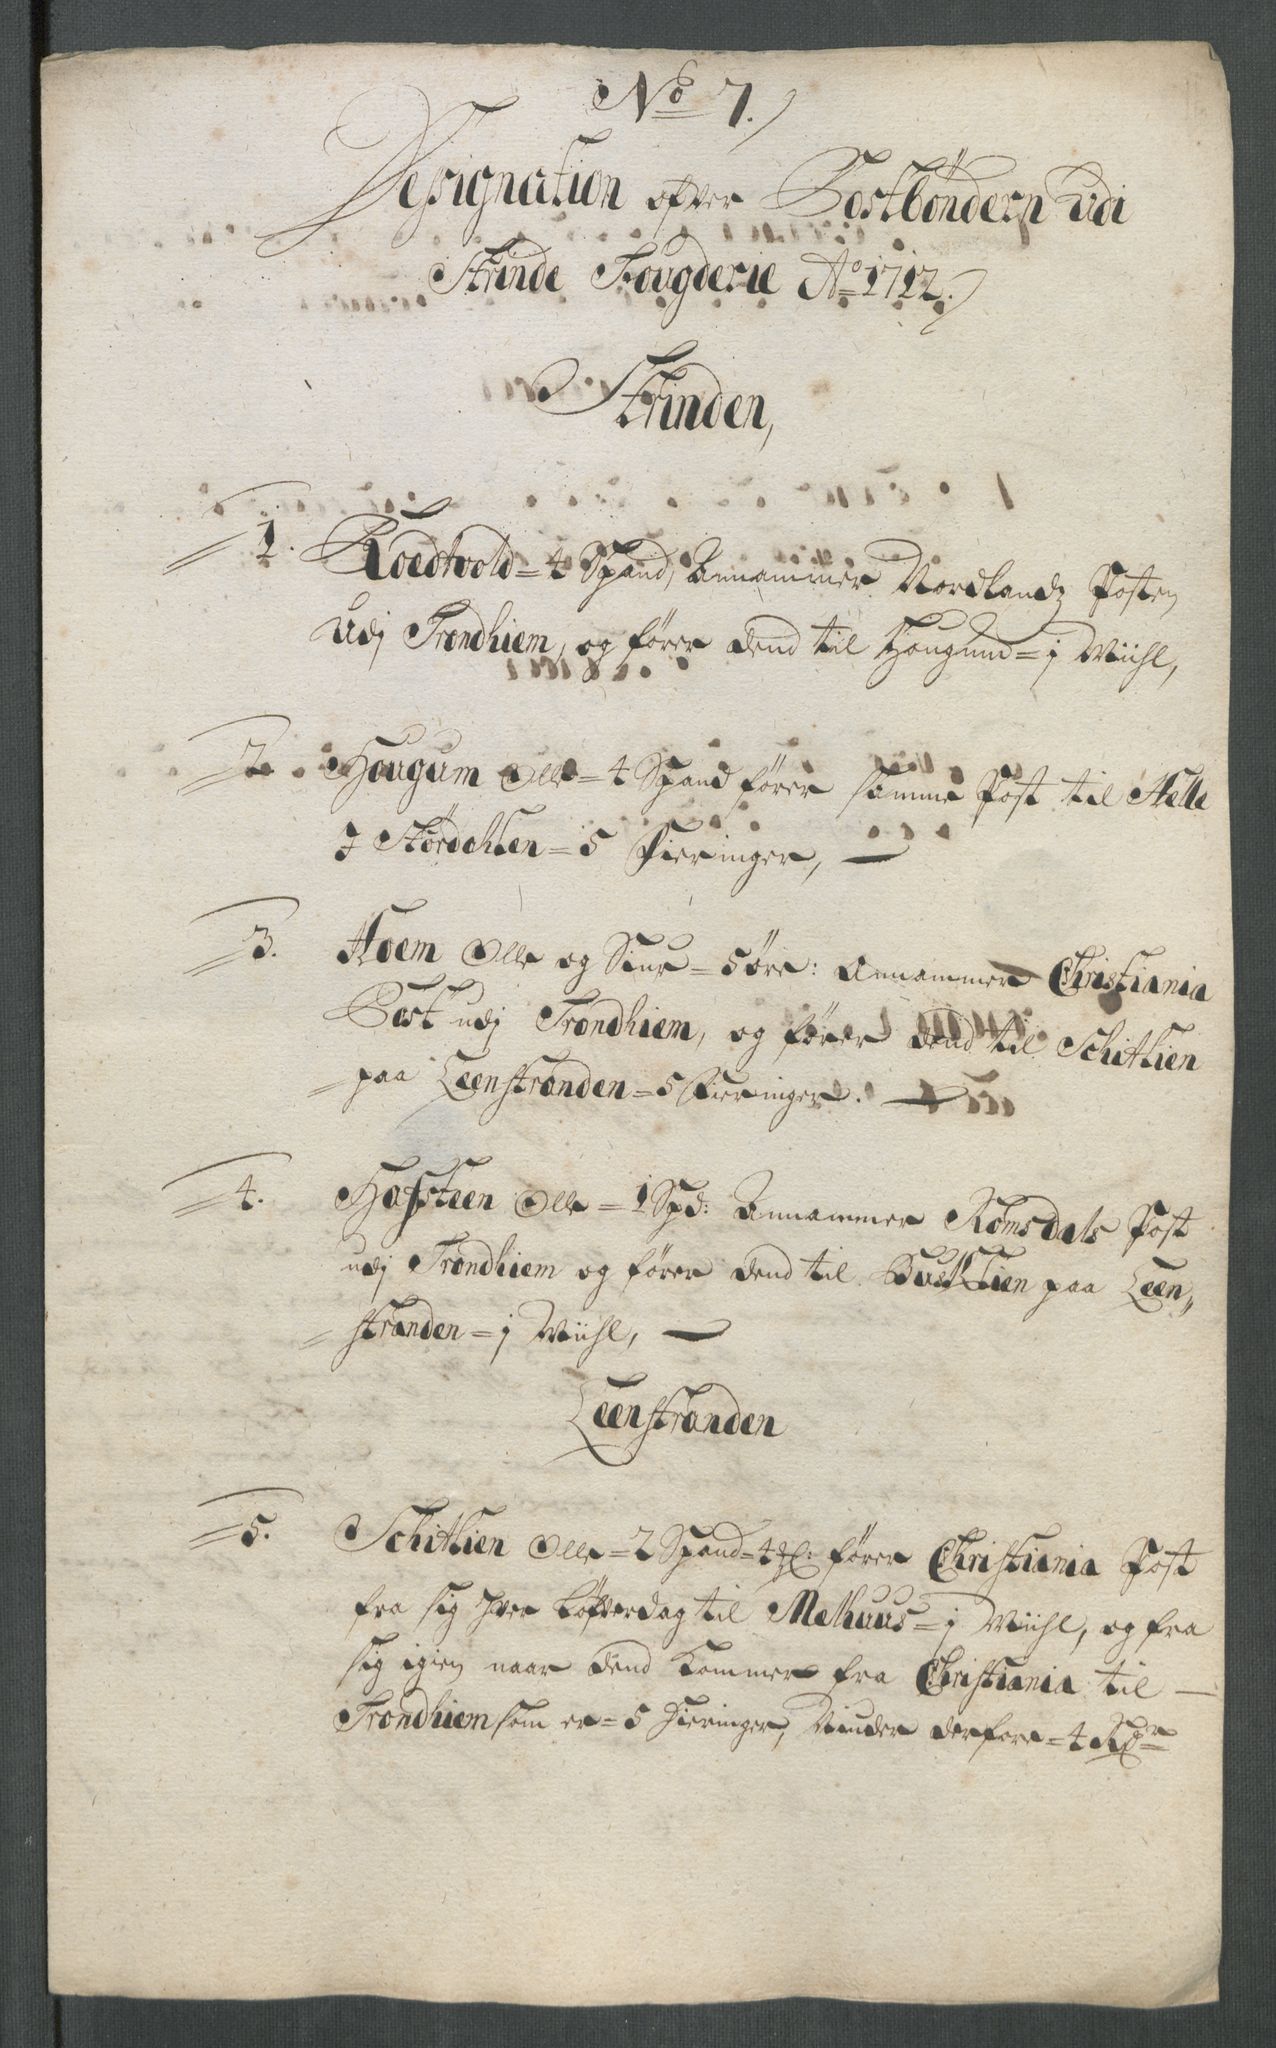 No 7.
Designation ofver Postbönderne Udi
Strinde Fougderie Ao 1712.
Strinden,
1. Roedtvold = 4 Spand, Annammer Nordlandz Posten
Udj Trondhiem, og fører dend til Hougum = j Miihl,
2. Hougum Olle = 4 Spand fører samme Post til Helle
j Størdahlen = 5 Fieringer,
3. Hoem Olle og Siur = 5 öre: Annammer Christiania
Post udj Trondhiem, og fører dend til Schitlien
paa Leenstranden = 5 Fieringer.
4. Hafsteen Olle = 1 Spd: Annammer Romsdals Post
udj Trondhiem og fører dend til Buschlien paa Leen„
stranden = j Miihl,
Leenstranden
5. Schitlien Olle = 2 Spand = 4 fører Christiania Post
fra sig hver Løfverdag til Melhuus = j Miihl, og fra
sig igien naar dend kommer fra Christiania til
Trondhiem som er = 5 Fieringer, Niuder derfore = 4 Rdr